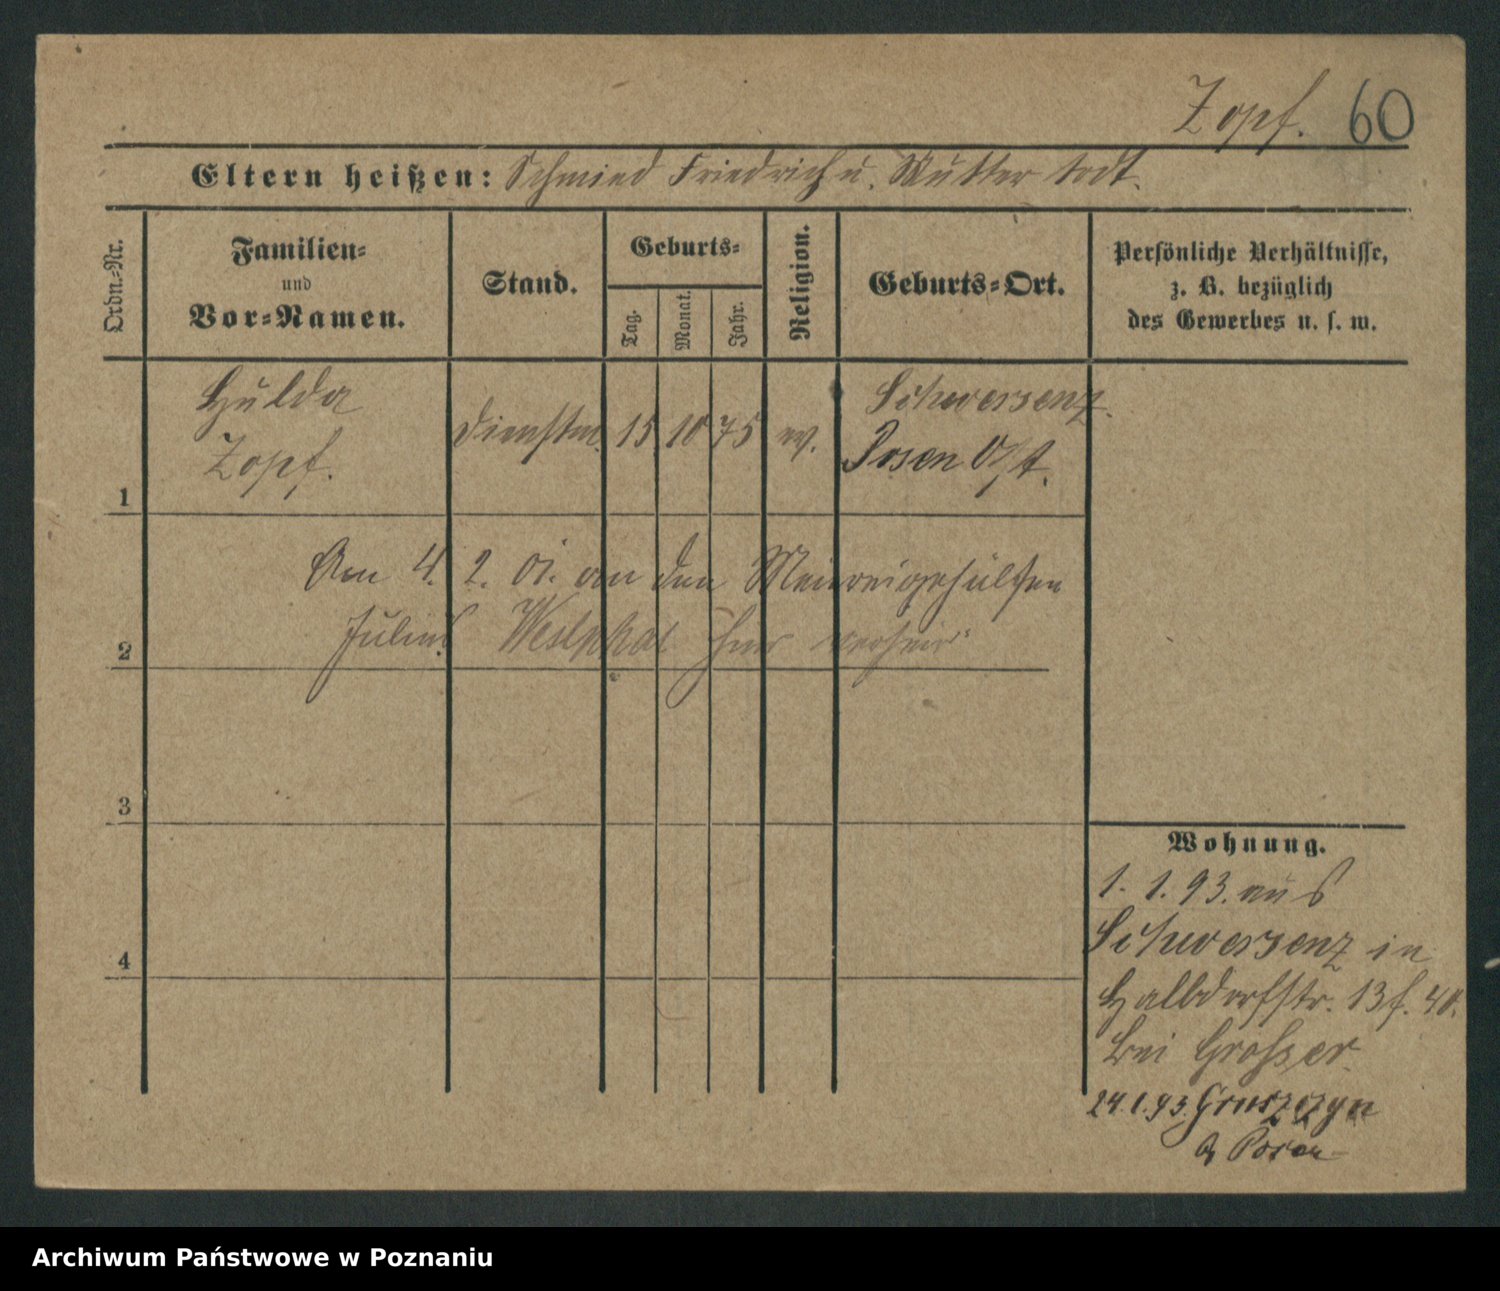 Zopf. 60
Eltern heißen: Schmied Friedrich u. Mutter todt.
Ordn.-Nr.
Familien-
und
Vor-Namen.
Stand.
Geburts-
Tag.
Monat.
Jahr.
Religion.
Geburts-Ort.
Persönliche Verhältnisse,
z. B. bezüglich
des Gewerbes u. s. w.
1
Hulda
Zopf.
Dienstm.
15
10
75
ev.
Schwersenz.
Posen Ost.
2
Am 4. 2. 01. an den Meiereigehülfen
Julius Westphal hier verheir
3
4
Wohnung.
1. 1. 93. aus
Schwersenz in
Halbdorfstr. 13
bei Grosser
24.1.93. Gruszczyn
Posen
Archiwum Państwowe w Poznaniu